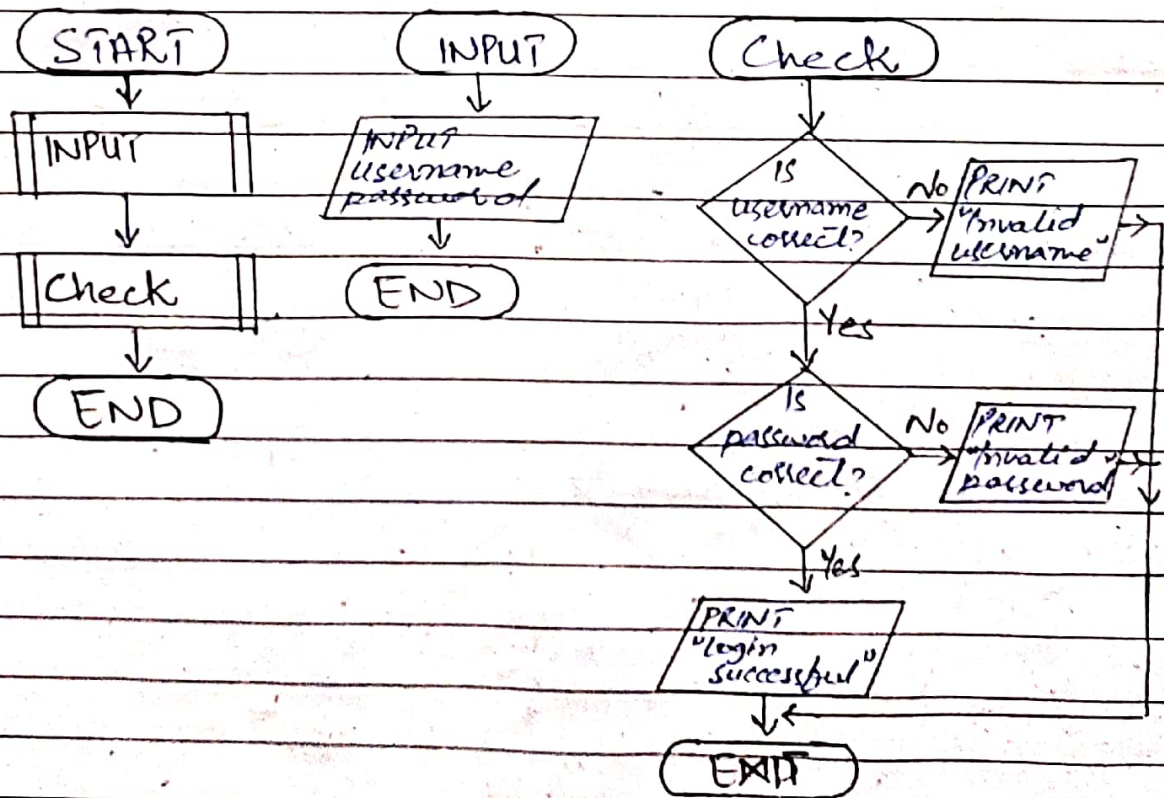 START
INPUT
Check
END
INPUT
INPUT
username
password
END
Check
Is
username
correct?
No
PRINT
"Invalid
username"
Yes
Is
password
correct?
No
PRINT
"Invalid"
password
Yes
PRINT
"Login
successful"